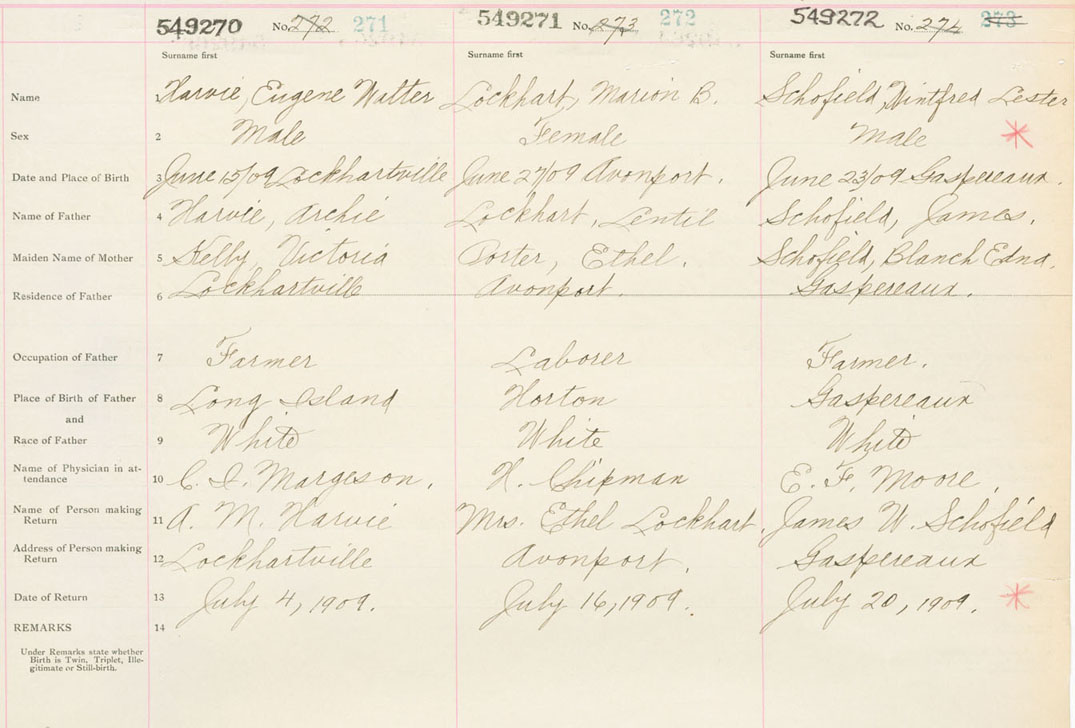 549270 No. 272 271 549271 No. 273 272 549272 No. 274 273
Surname first Surname first Surname first
Name 1 Harvie, Eugene Walter Lockhart, Marion B. Schofield, Wintfred Lester
Sex 2 Male Female Male *
Date and Place of Birth 3 June 15/09 Lockhartville June 27/09 Avonport. June 23/09 Gaspereaux.
Name of Father 4 Harvie, Archie Lockhart, Lentie Schofield, James.
Maiden Name of Mother 5 Kelly, Victoria Porter, Ethel. Schofield, Blanch Edna.
Residence of Father 6 Lockhartville Avonport. Gaspereaux.
Occupation of Father 7 Farmer Laborer Farmer.
Place of Birth of Father 8 Long Island Horton Gaspereaux
and
Race of Father 9 White White White
Name of Physician in at-
tendance 10 C. I. Margeson. H. Chipman E. F. Moore.
Name of Person making
Return 11 A. M. Harvie Mrs. Ethel Lockhart. James W. Schofield
Address of Person making
Return 12 Lockhartville Avonport. Gaspereaux
Date of Return 13 July 4, 1909. July 16, 1909. July 20, 1909. *
REMARKS 14
Under Remarks state whether
Birth is Twin, Triplet, Ille-
gitimate or Still-birth.